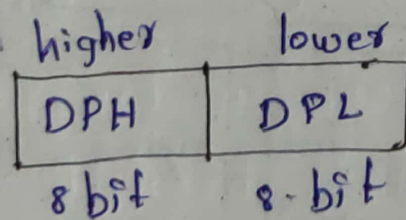 higher lower
DPH DPL
8 bit 8-bit